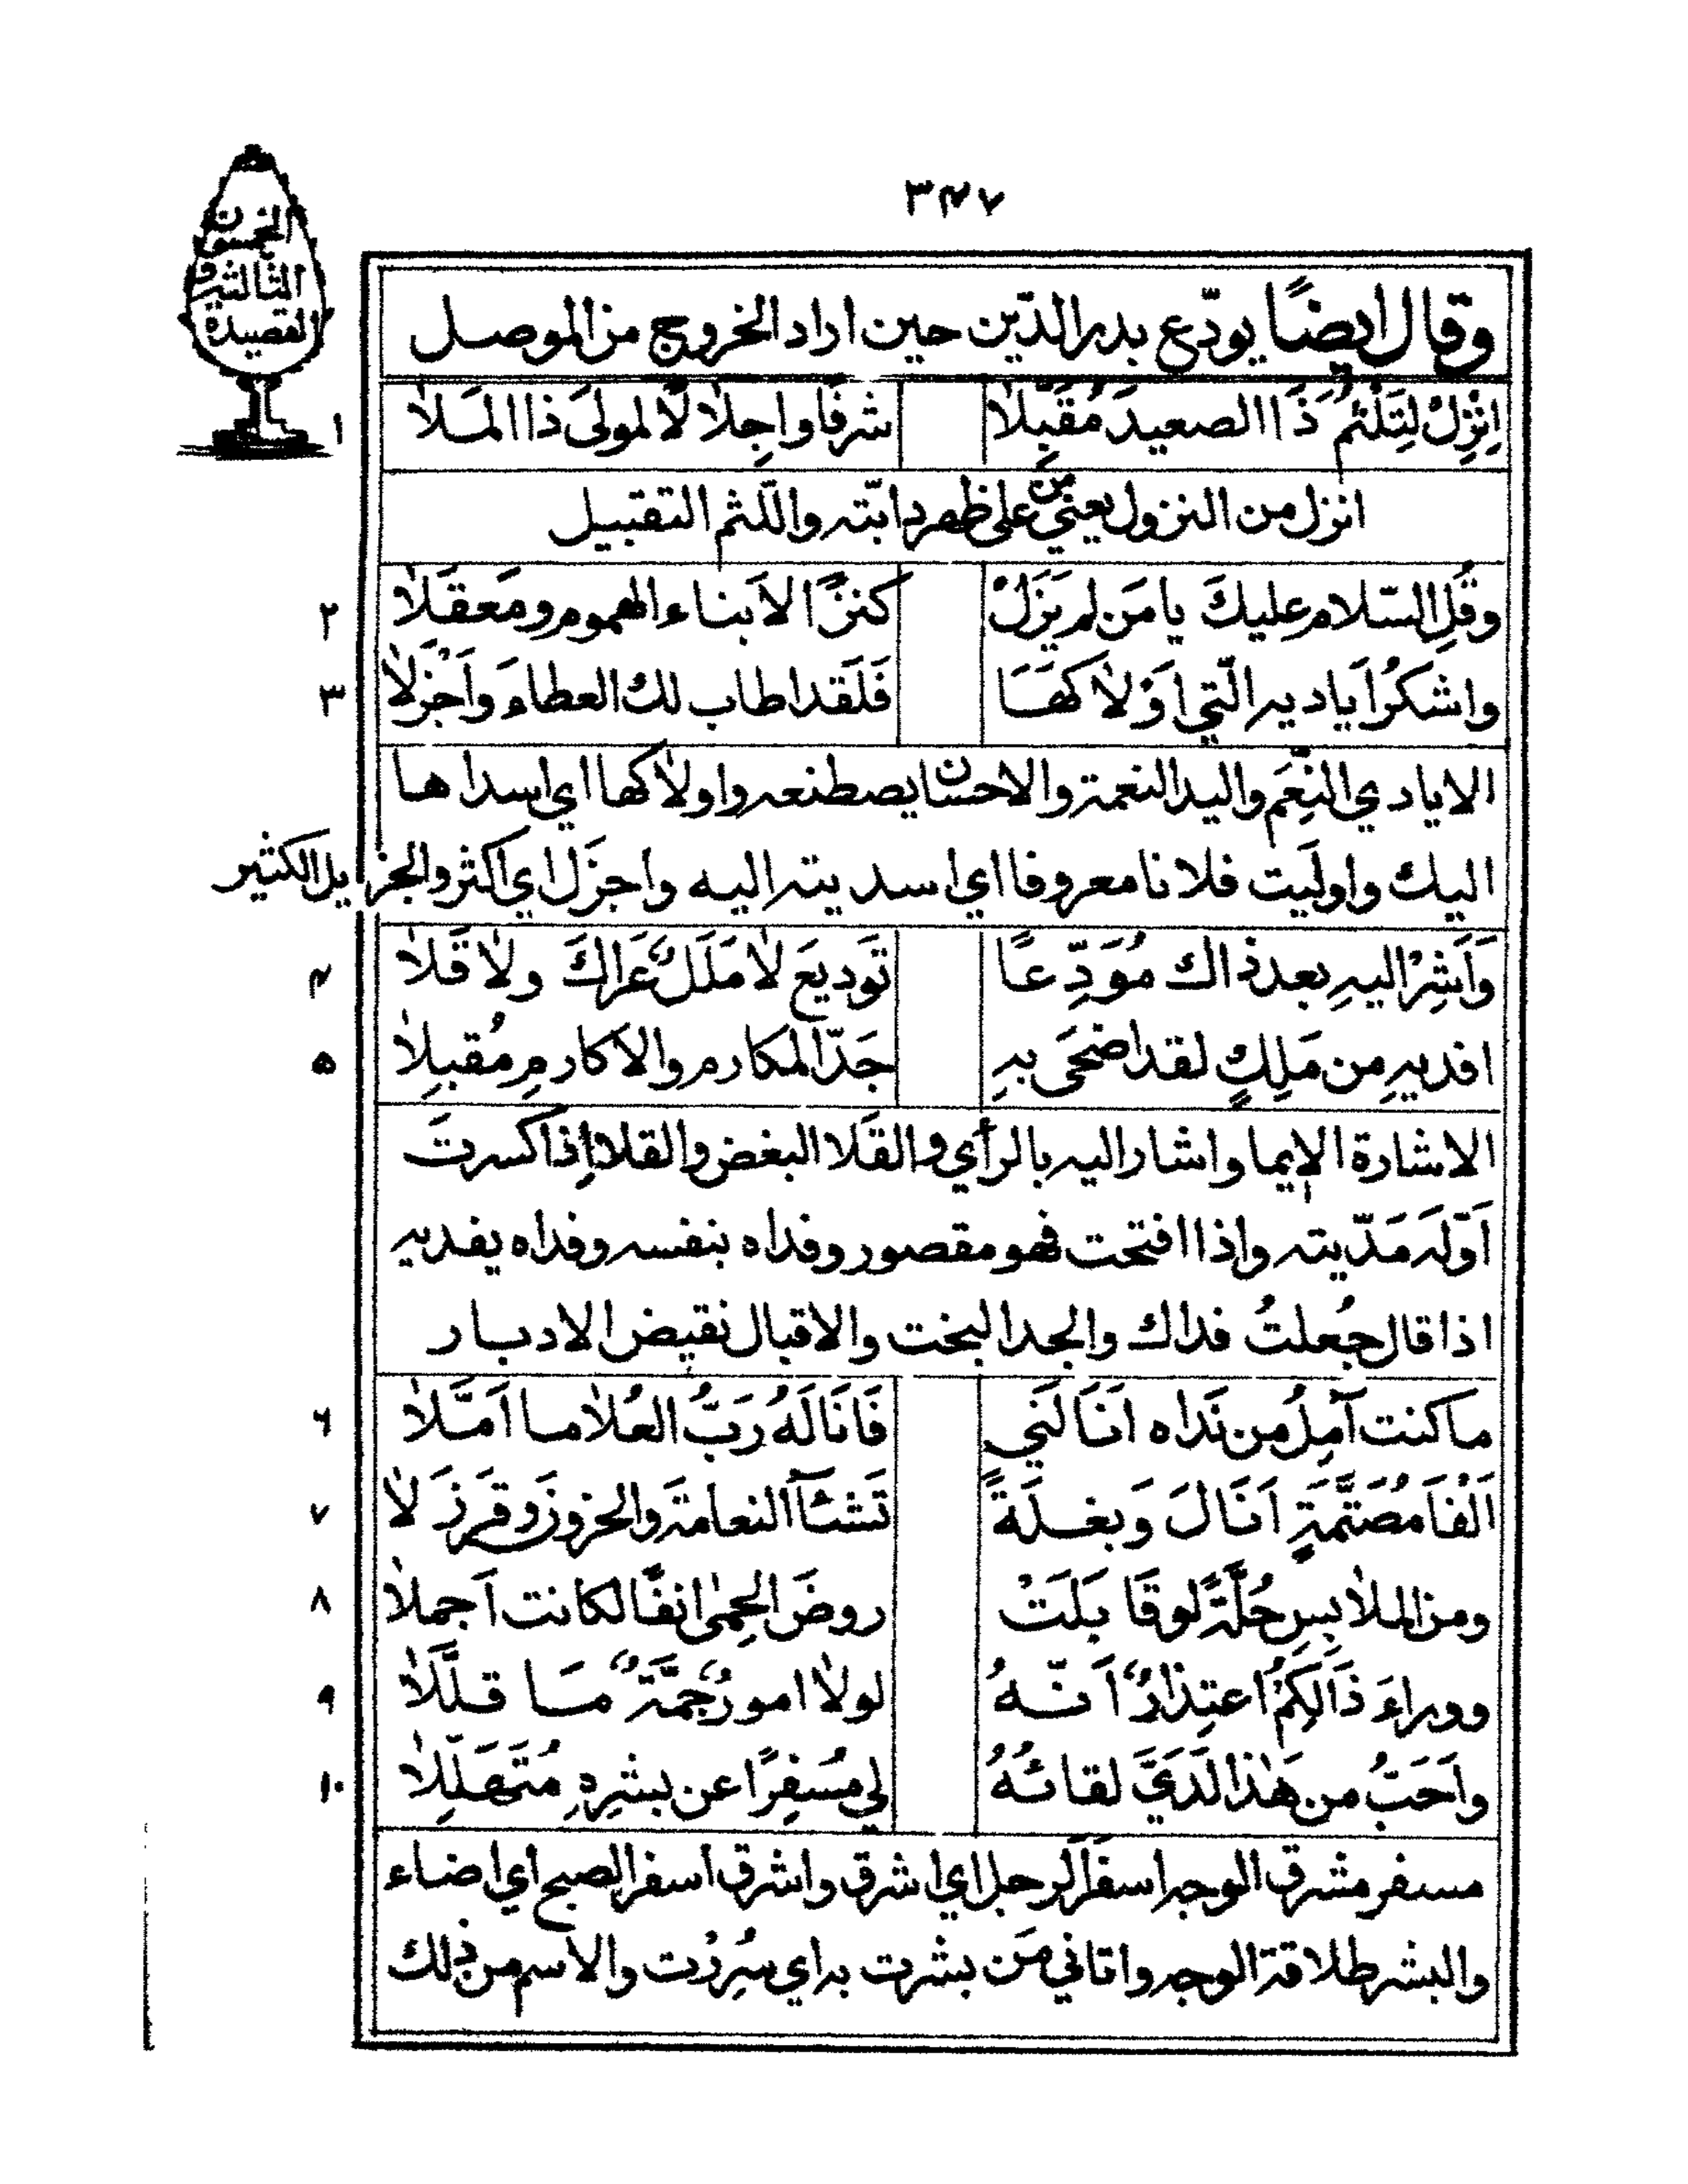 ٣٤٧
القصيدة
الثالثة و
الخمسون
وقال ايضًا يودّع بدر الدّين حين اراد الخروج من الموصل
اِنْزِلْ لِتَلْثِمَ ذَا الصعيدَ مُقَبِّلا شرفًا واجِلالًا لمولىَ ذا الملا ١
انزل من النزول يعني من على ظهر دابّته واللّثم التقبيل
وقُلِ السّلام عليكَ يا مَن لم يَزَلْ كنزًا لاَبناء الهموم ومَعقَلا ٢
واشكُر اَياديه الّتي اَوْلاكهَا فَلَقد اطاب لك العطاءَ واَجْزَلا ٣
الايادي النِّعَم واليد النعمة والاحسان يصطنعه واولاكها اي اسداها
اليك واولَيت فلانا معروفا اي اسديته اليه واجزَل اي اكثر والجزيل الكثير
وَاَشِرْ اليهِ بعد ذاك مُوَدِّعًا تَوديعَ لا مَلَلٌ عَراكَ ولا قَلا ٤
افديهِ مِن مَلِكٍ لقد اضحَى بهِ جَدّ المكارم والاكارمِ مُقبِلا ٥
الاشارة الايما واشار اليه بالرأي والقَلا البغض والقلا اِذا كسرتَ
اَوّلَه مَدّيته واذا افتحت فهو مقصور وفداه بنفسه وفداه يفديه
اذا قال جُعلتُ فداك والجد البخت والاقبال نقيض الادبار
ما كنت آمِلُ من نَداه اَنَالَني فَانَالَهُ رَبُّ العُلا ما اَمَّلا ٦
اَلْفاً مُصَتَّمَةٍ اَنَالَ وَبغلَةً تَشَآ النعامَة والخزوز وقَرزَلا ٧
ومن الملابِسِ حُلَّةً لو قَابَلَتْ روضَ الحِمىٰ انفًا لكانت اَجملا ٨
ووراءَ ذَالِكُمُ اعتِذارٌ اَنّهُ لولا امورٌ جَمَّةٌ مَا قلَّلَا ٩
واَحَبُّ من هٰذا لَدَيَّ لقائهُ لي مُسفِرًا عن بِشرِهِ مُتَهَلِّلا ١٠
مسفر مشرق الوجه اسفَرَ الرجل اي اشرق واشرق اسفر الصبح اي اضاء
والبشر طلاقة الوجه واتاني مَن بشرت به اي سُرِرْت والاسم من ذلك